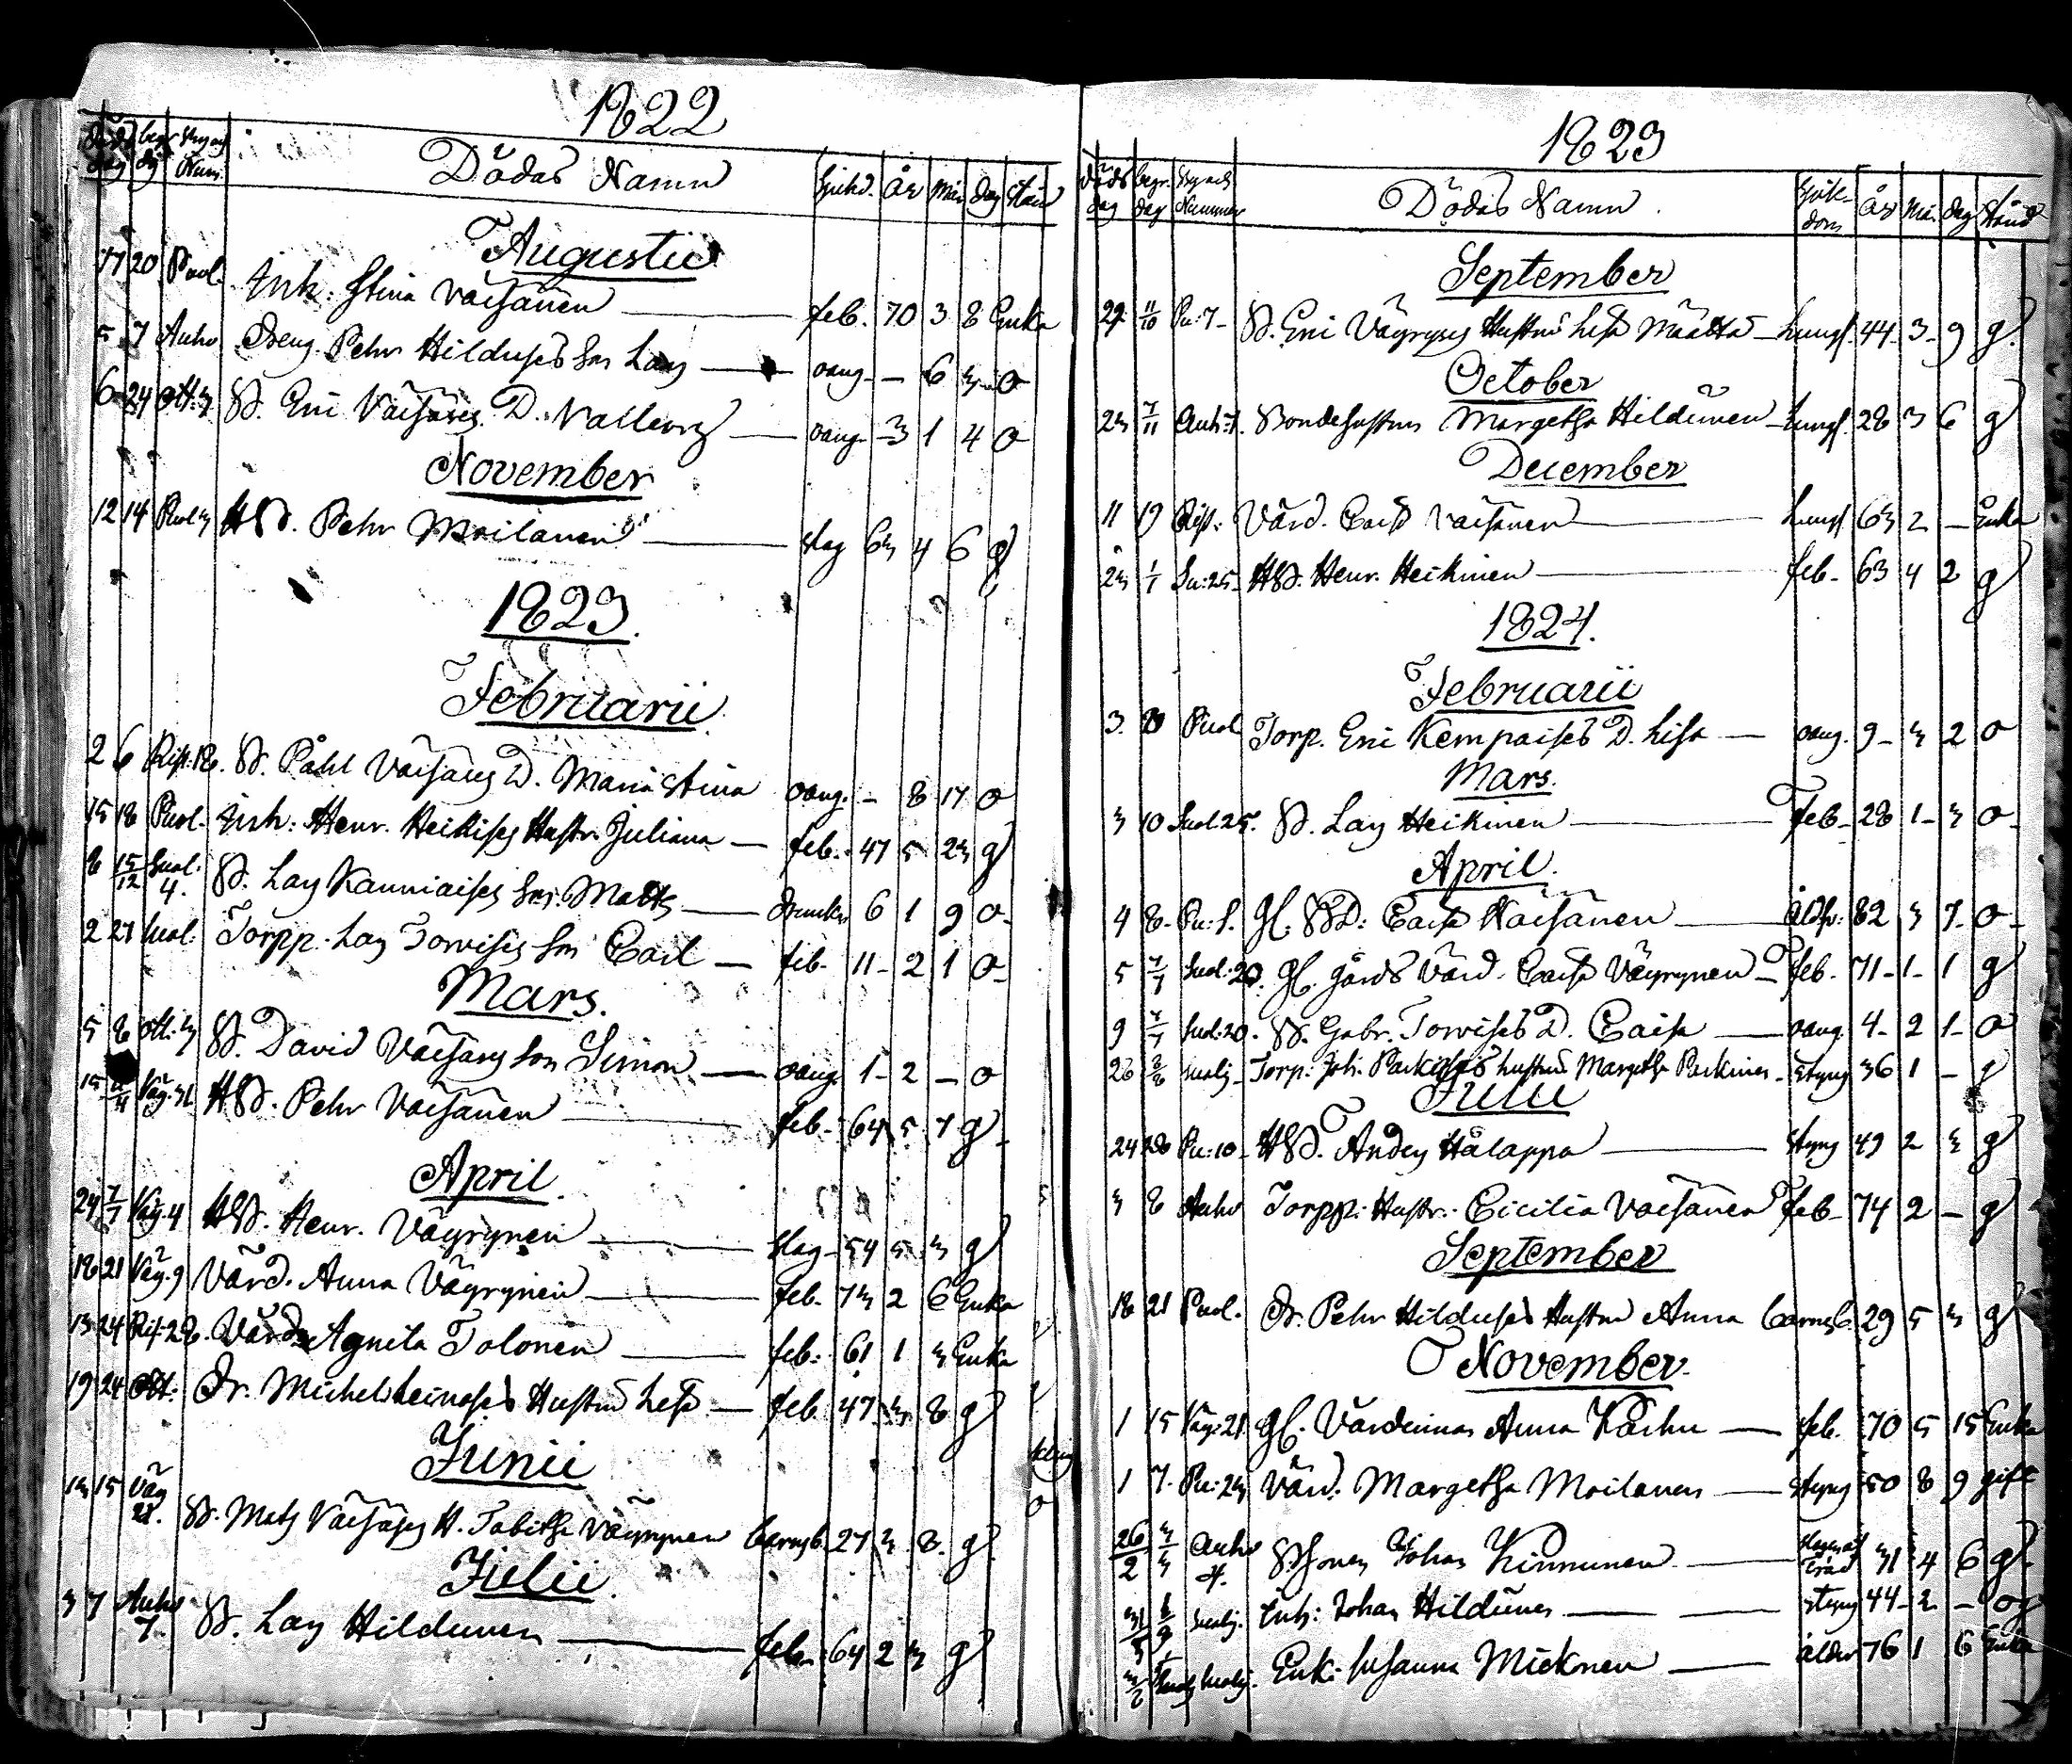 1822
Döds dag begr dag By och Num. Dödas Namn Sjukd. År Mån Dag Stånd
Augustii
17 20 Puol. Inh: Stina Väisänen feb. 70 3 8 Enka
5 7 Auho Dreng. Pehr Hilduses Son Lars oang. – 6 3 o
6 24 Ott: 3 B. Eric Väisäses D. Valborg oang 3 1 4 o
November
12 14 Puol 3 HB. Pehr Moilanen slag 63 4 6 g
1823.
Februarii
2 6 Rist. 18. B. Påhl Väisäses D. Maria Stina oang. – 8 17 o
15 18 Puol. Inh: Henr. Heikises Hustr. Juliana feb. 47 5 23 g
8 15/12 Suol. 4. B. Lars Kanniaises Son Matts Drunkn 6 1 9 o
2 27 Suol: Torpp. Lars Torvises Son Carl feb. 11 2 1 o
Mars.
5 8 Ott: 3 B. David Väisäses Son Simon oang 1 2 – o
15 Väy. 31 HB. Pehr Väisänen feb. 64 5 7 g
April
24 7/7 Väy. 4 HB. Henr. Väyrynen slag 54 5 3 g
18 21 Väy. 9 Värd. Anna Väyrynen feb. 73 2 6 Enka
13 24 Rist: 28. Värd. Agneta Tolonen feb. 61 1 3 Enka
19 24 Ott: Dr. Michel Leinoses Hustru Lisa feb 47 3 8 g
Junii
13 15 Väy 21. B. Mats Väisäses H. Tabitha Väyrynen barnsb. 27 3 8 g
Julii
3 7 Auho 7. B. Lars Hildunen feb. 64 2 3 g
1823
Döds dag begr. dag By och Nummer Dödas Namn Sjuk-dom År Mån. Dag Stånd
September
29 11/10 Pu: 7 B. Eric Väyryses Hustru Lisa Määttä Lungs. 44 3 9 g
October
23 7/11 Auh: 7. Bondehustrun Margetha Hildunen Lungs. 28 3 6 g
December
11 19 Rist: Värd. Caisa Väisänen Lungs 63 2 – Enka
23 1/1 Su: 25 HB. Henr. Heikinen feb. 63 4 2 g
1824.
Februarii
3. Puol Torp. Eric Kempaises D. Lisa oang. 9 3 2 o
Mars.
3 10 Suol. 25. B. Lars Heikinen feb 28 1 3 o
April.
4 8 Pu: Gl. BD: Caisa Väisänen Åldr: 82 3 7 o
5 7/7 Suol: 20. Gl. Gårds Värd. Caisa Väyrynen feb. 71 1 1 g
9 Suol: 20. B. Gabr. Torvises D. Caisa oang. 4 2 1 o
26 Suolij Torp. Joh. Parkises hustru Margetha Parkinen Styng 36 1 –
Julii
24 28 Pu: 10 HB. Anders Hålappa styng 49 2 3 g
3 8 Auho Torpp: Hustr. Cicilia Väisänen feb 74 2 – g
September
18 21 Puol. Dr. Pehr Hilduses Hustru Anna barnsb. 29 5 3 g
November
1 15 Väy: 21. Gl. Värdinnan Anna Karhu feb. 70 5 15 Enka
1 7 Pu: 23 Värd. Margetha Moilanen styng 50 8 9 gift
26/2 Auho 4. B. Sonen Johan Kinnunen 31 4 6 g
Suolij. Inh: Johan Hildunen styng 44 2 –
Suolij. Enk: Susanna Mickonen ålder 76 1 6 Enka